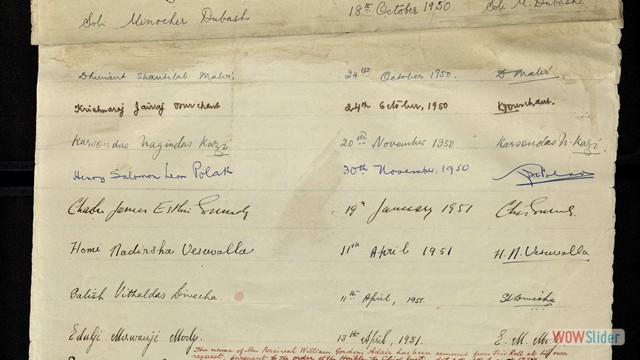 Soli Minocher Dubash 18th October 1950 Soli M. Dubash.
Dhumant Shantilal 24th October 1950. D
Krishnaraj Jairaj 24th October, 1950
Karsondas Nagindas Kazi 20th November 1950 Karsondas N. Kazi
Henry Salomon Leon Polak 30th November, 1950
Charles James 19th January 1951
Homi Nadirsha Vesuvalla 11th April 1951 H. N. Vesuvalla
Satish Vithaldas 11th April, 1951.
Edulji Merwanji Mody. 13th April, 1951. E. M. Mody
The name of Mr Percival William Gordon Adair has been removed from this Roll at his own
request, pursuant to the order of the Honble
WOWSlider